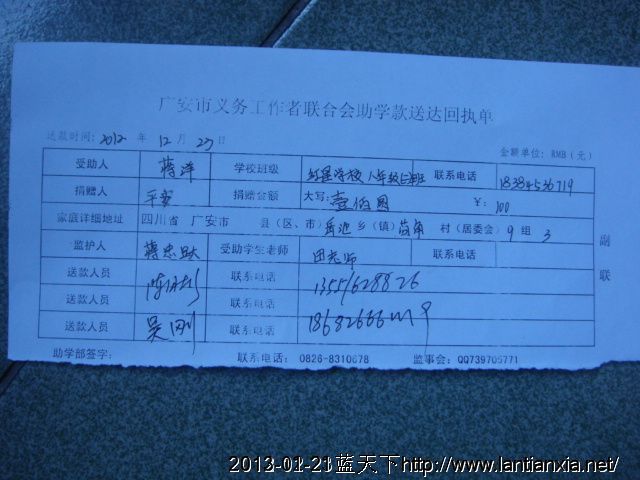 广安市义务工作者联合会助学款送达回执单
送款时间: 2012 年 12 月 23 日 金额单位: RMB(元)
受助人 蒋洋 学校班级 红星学校八年级 班 联系电话 18384536719
捐赠人 平安 捐赠金额 大写: 壹佰圆 ¥: 100
家庭详细地址 四川省 广安市 县(区、市) 乡(镇) 村(居委会) 9 组 3
监护人 蒋忠 受助学生老师 田老师 联系电话
送款人员 联系电话 13551628826
送款人员 联系电话
送款人员 吴刚 联系电话
副联
助学部签字: 联系电话: 0826-8310678 监事会: QQ739705771
蓝天下http://www.lantianxia.net/